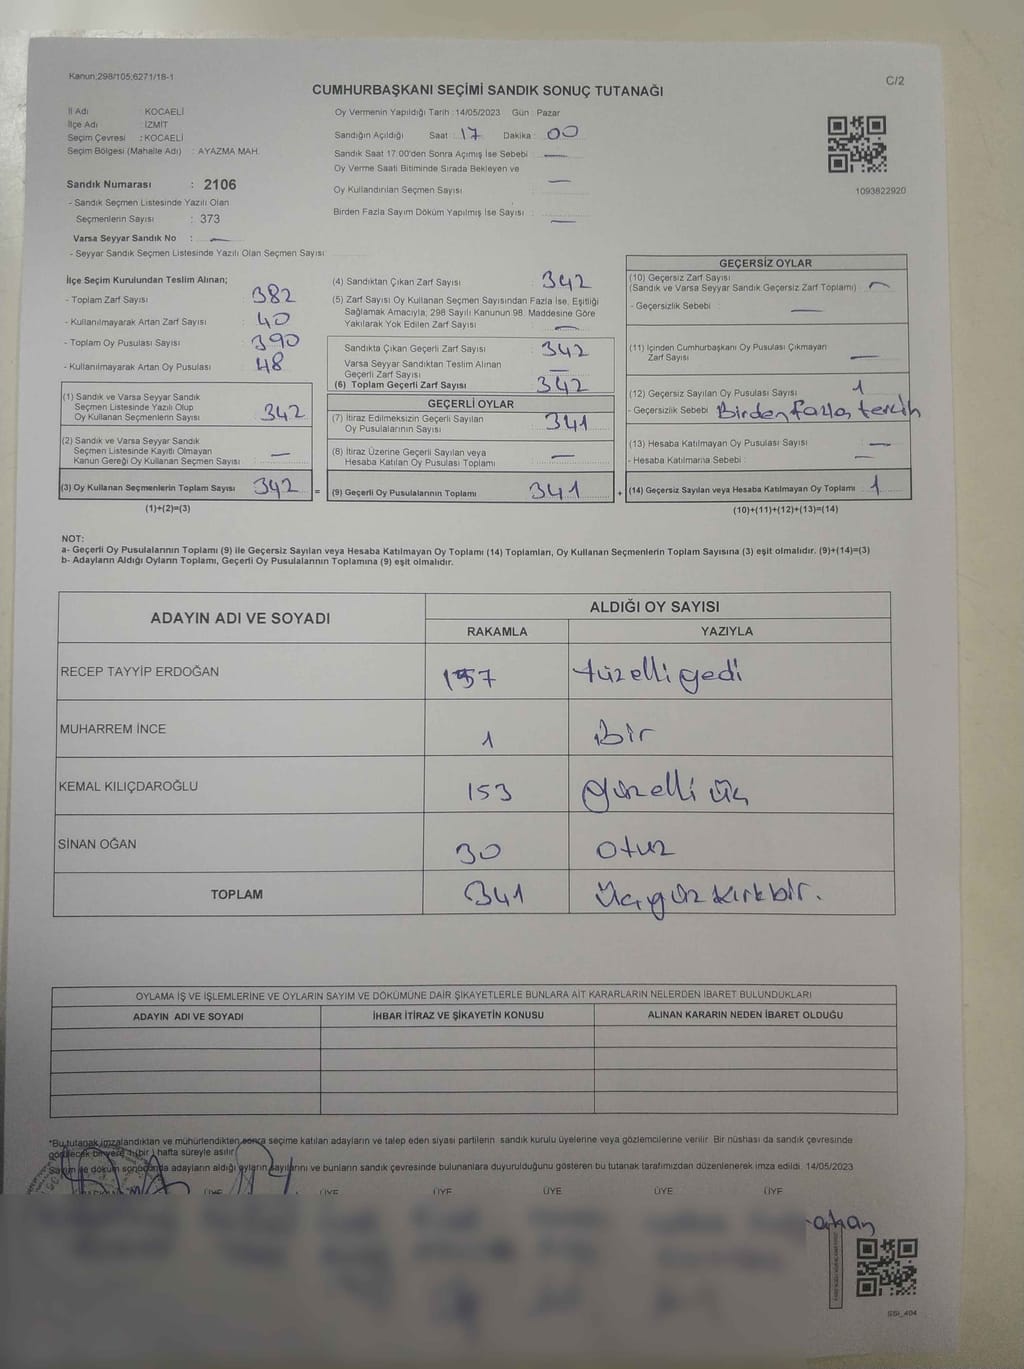 Kanun;298/105;6271/18-1
C/2
CUMHURBAŞKANI SEÇİMİ SANDIK SONUÇ TUTANAĞI
İl Adı : KOCAELİ
İlçe Adı : İZMİT
Seçim Çevresi : KOCAELİ
Seçim Bölgesi (Mahalle Adı) : AYAZMA MAH.
Oy Vermenin Yapıldığı Tarih :14/05/2023 Gün : Pazar
Sandığın Açıldığı Saat : 17 Dakika : 00
Sandık Saat 17:00'den Sonra Açımış İse Sebebi : —
Oy Verme Saati Bitiminde Sırada Bekleyen ve
Oy Kullandırılan Seçmen Sayısı : —
Birden Fazla Sayım Döküm Yapılmış İse Sayısı : —
1093822920
Sandık Numarası : 2106
- Sandık Seçmen Listesinde Yazılı Olan
Seçmenlerin Sayısı : 373
Varsa Seyyar Sandık No : —
- Seyyar Sandık Seçmen Listesinde Yazılı Olan Seçmen Sayısı:
İlçe Seçim Kurulundan Teslim Alınan;
- Toplam Zarf Sayısı 382
- Kullanılmayarak Artan Zarf Sayısı : 40
- Toplam Oy Pusulası Sayısı : 390
- Kullanılmayarak Artan Oy Pusulası : 48
(1) Sandık ve Varsa Seyyar Sandık
Seçmen Listesinde Yazılı Olup
Oy Kullanan Seçmenlerin Sayısı 342
(2) Sandık ve Varsa Seyyar Sandık
Seçmen Listesinde Kayıtlı Olmayan
Kanun Gereği Oy Kullanan Seçmen Sayısı —
(3) Oy Kullanan Seçmenlerin Toplam Sayısı 342 =
(1)+(2)=(3)
(4) Sandıktan Çıkan Zarf Sayısı 342
(5) Zarf Sayısı Oy Kullanan Seçmen Sayısından Fazla İse, Eşitliği
Sağlamak Amacıyla; 298 Sayılı Kanunun 98. Maddesine Göre
Yakılarak Yok Edilen Zarf Sayısı : —
Sandıkta Çıkan Geçerli Zarf Sayısı 342
Varsa Seyyar Sandıktan Teslim Alınan
Geçerli Zarf Sayısı —
(6) Toplam Geçerli Zarf Sayısı 342
GEÇERLİ OYLAR
(7) İtiraz Edilmeksizin Geçerli Sayılan
Oy Pusulalarının Sayısı 341
(8) İtiraz Üzerine Geçerli Sayılan veya
Hesaba Katılan Oy Pusulası Toplamı —
(9) Geçerli Oy Pusulalarının Toplamı 341 +
GEÇERSİZ OYLAR
(10) Geçersiz Zarf Sayısı
(Sandık ve Varsa Seyyar Sandık Geçersiz Zarf Toplamı) —
- Geçersizlik Sebebi : —
(11) İçinden Cumhurbaşkanı Oy Pusulası Çıkmayan
Zarf Sayısı —
(12) Geçersiz Sayılan Oy Pusulası Sayısı 1
- Geçersizlik Sebebi Birden fazla tercih
(13) Hesaba Katılmayan Oy Pusulası Sayısı —
- Hesaba Katılmama Sebebi : —
(14) Geçersiz Sayılan veya Hesaba Katılmayan Oy Toplamı 1
(10)+(11)+(12)+(13)=(14)
NOT:
a- Geçerli Oy Pusulalarının Toplamı (9) ile Geçersiz Sayılan veya Hesaba Katılmayan Oy Toplamı (14) Toplamları, Oy Kullanan Seçmenlerin Toplam Sayısına (3) eşit olmalıdır. (9)+(14)=(3)
b- Adayların Aldığı Oyların Toplamı, Geçerli Oy Pusulalarının Toplamına (9) eşit olmalıdır.
ADAYIN ADI VE SOYADI ALDIĞI OY SAYISI
RAKAMLA YAZIYLA
RECEP TAYYİP ERDOĞAN 157 yüzelli yedi
MUHARREM İNCE 1 bir
KEMAL KILIÇDAROĞLU 153 yüzelli üç
SİNAN OĞAN 30 otuz
TOPLAM 341 üçyüz kırkbir.
OYLAMA İŞ VE İŞLEMLERİNE VE OYLARIN SAYIM VE DÖKÜMÜNE DAİR ŞİKAYETLERLE BUNLARA AİT KARARLARIN NELERDEN İBARET BULUNDUKLARI
ADAYIN ADI VE SOYADI İHBAR İTİRAZ VE ŞİKAYETİN KONUSU ALINAN KARARIN NEDEN İBARET OLDUĞU
*Bu tutanak imzalandıktan ve mühürlendikten sonra seçime katılan adayların ve talep eden siyasi partilerin sandık kurulu üyelerine veya gözlemcilerine verilir. Bir nüshası da sandık çevresinde
görülecek bir yere 1 (bir) hafta süreyle asılır
Sayım ve döküm sonucunda adayların aldığı oyların sayılarını ve bunların sandık çevresinde bulunanlara duyurulduğunu gösteren bu tutanak tarafımızdan düzenlenerek imza edildi. 14/05/2023
ÜYE ÜYE ÜYE ÜYE ÜYE ÜYE
SSI_404